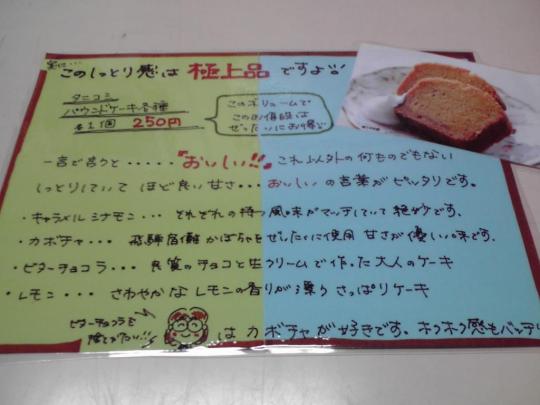 実は…
このしっとり感は 極上品 ですよ!!
タニコミ
パウンドケーキ各種
各1個 250円
このボリュームで
このお値段は
ぜったいにお得だ
一言で言うと・・・・・『おいしい!!』これ以外の何ものでもない
しっとりしていて ほど良い甘さ・・・ おいしい の言葉がピッタリです。
・キャラメルシナモン・・・ それぞれの持つ風味がマッチしていて絶妙です。
・カボチャ・・・ 飛騨宿儺かぼちゃをぜいたくに使用 甘さが優しい味です。
・ビターチョコラ・・・ 良質のチョコと生クリームで作った大人のケーキ
・レモン・・・ さわやかなレモンの香りが漂う さっぱりケーキ
ビターチョコラも
捨てがたい!!
はカボチャが好きです。ホクホク感もバッチ